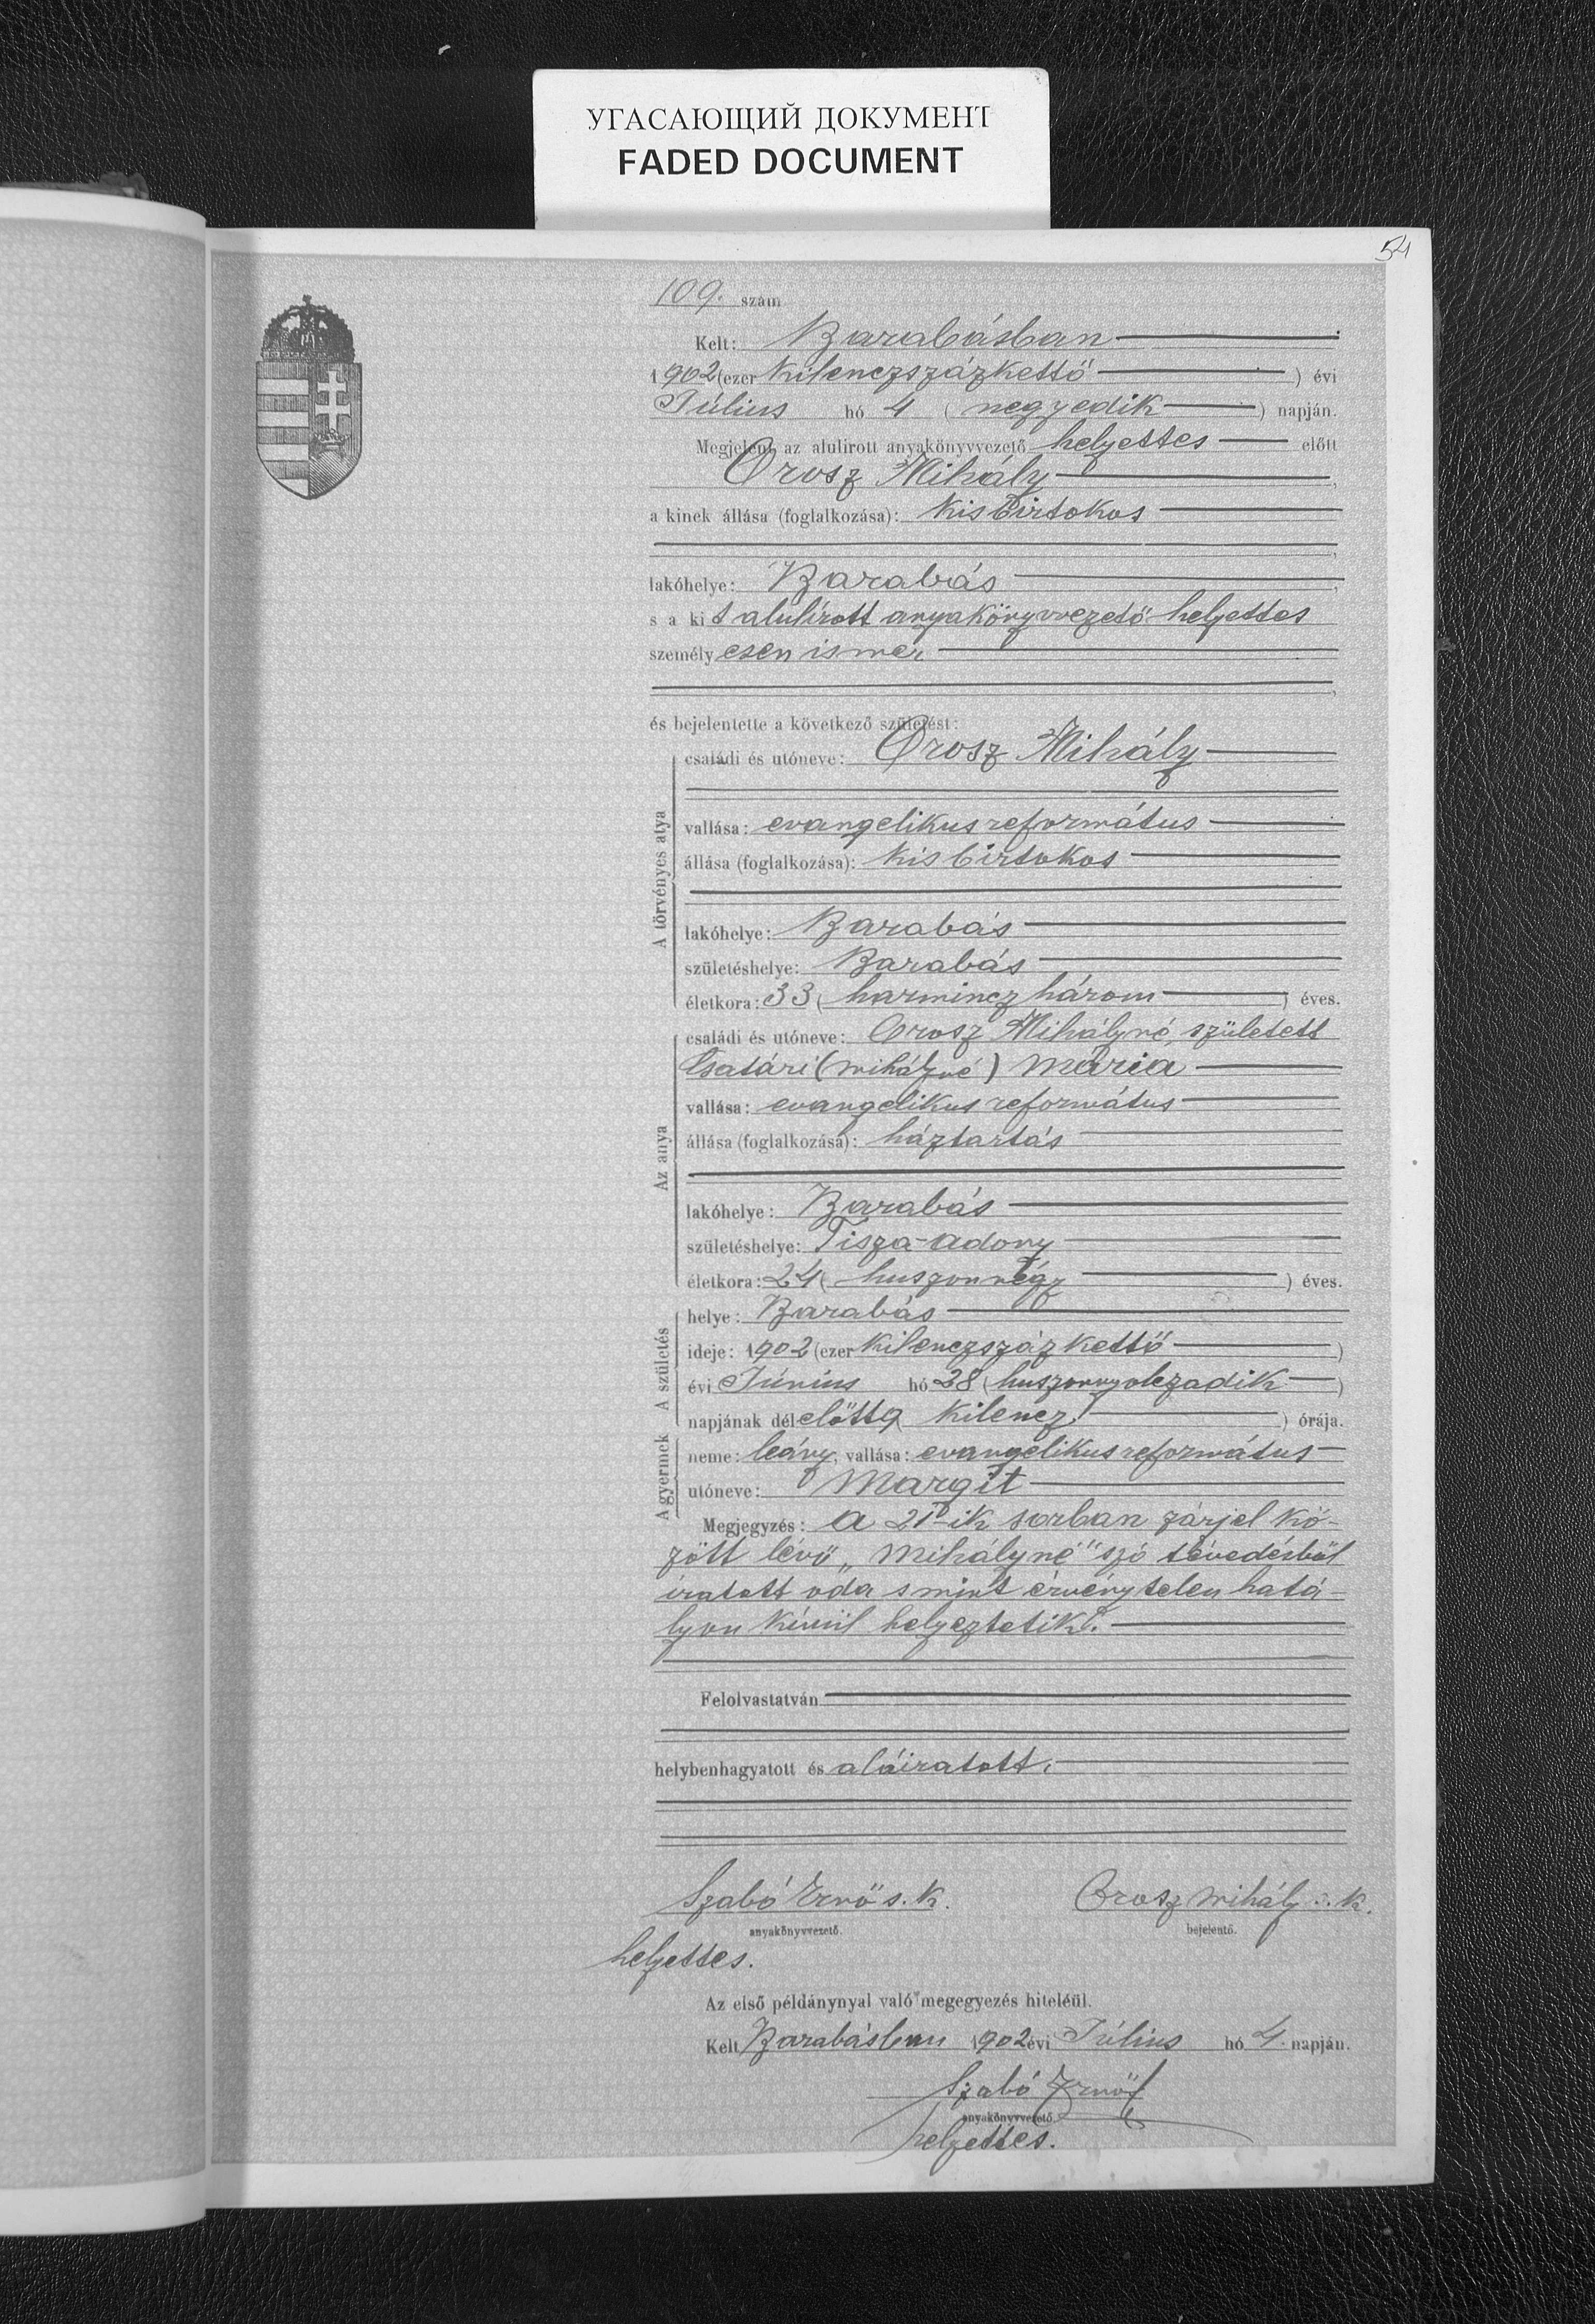 УГАСАЮЩИЙ ДОКУМЕНТ
FADED DOCUMENT
54
109. szám
Kelt: Barabásban
1902 (ezer kilenczszázkettő ) évi
Július hó 4 ( negyedik ) napján.
Megjelent az alulirott anyakönyvvezető helyettes előtt
Orosz Mihály,
a kinek állása (foglalkozása): kisbirtokos
lakóhelye: Barabás,
s a kit alulirott anyakönyvvezető helyettes
személyesen ismer,
és bejelentette a következő születést:
A törvényes atya
családi és utóneve: Orosz Mihály
vallása: evangelikus református
állása (foglalkozása): kisbirtokos
lakóhelye: Barabás
születéshelye: Barabás
életkora: 33 ( harmincz három ) éves.
Az anya
családi és utóneve: Orosz Mihályné, született
Csatári (mihályné) Mária
vallása: evangelikus református
állása (foglalkozása): háztartás
lakóhelye: Barabás
születéshelye: Tisza-adony
életkora: 24 ( huszonnégy ) éves.
A születés
helye: Barabás
ideje: 1902 (ezer kilenczszáz kettő )
évi Június hó 28 ( huszonnyolczadik )
napjának délelőtt 9 ( kilencz ) órája.
A gyermek
neme: leány, vallása: evangelikus református
utóneve: Margit
Megjegyzés: A 21-ik sorban zárjel kö-
zött lévő „Mihályné" szó tévedésből
iratott oda s mint érvénytelen hatá-
lyon kívül helyeztetik.
Felolvastatván
helybenhagyatott és aláiratott.
Szabó Ernő s. k. Orosz Mihály s. k.
anyakönyvvezető. bejelentő.
helyettes.
Az első példánynyal való megegyezés hiteléül.
Kelt Barabásban 1902 évi Július hó 4. napján.
Szabó Ernő
anyakönyvvezető.
helyettes.